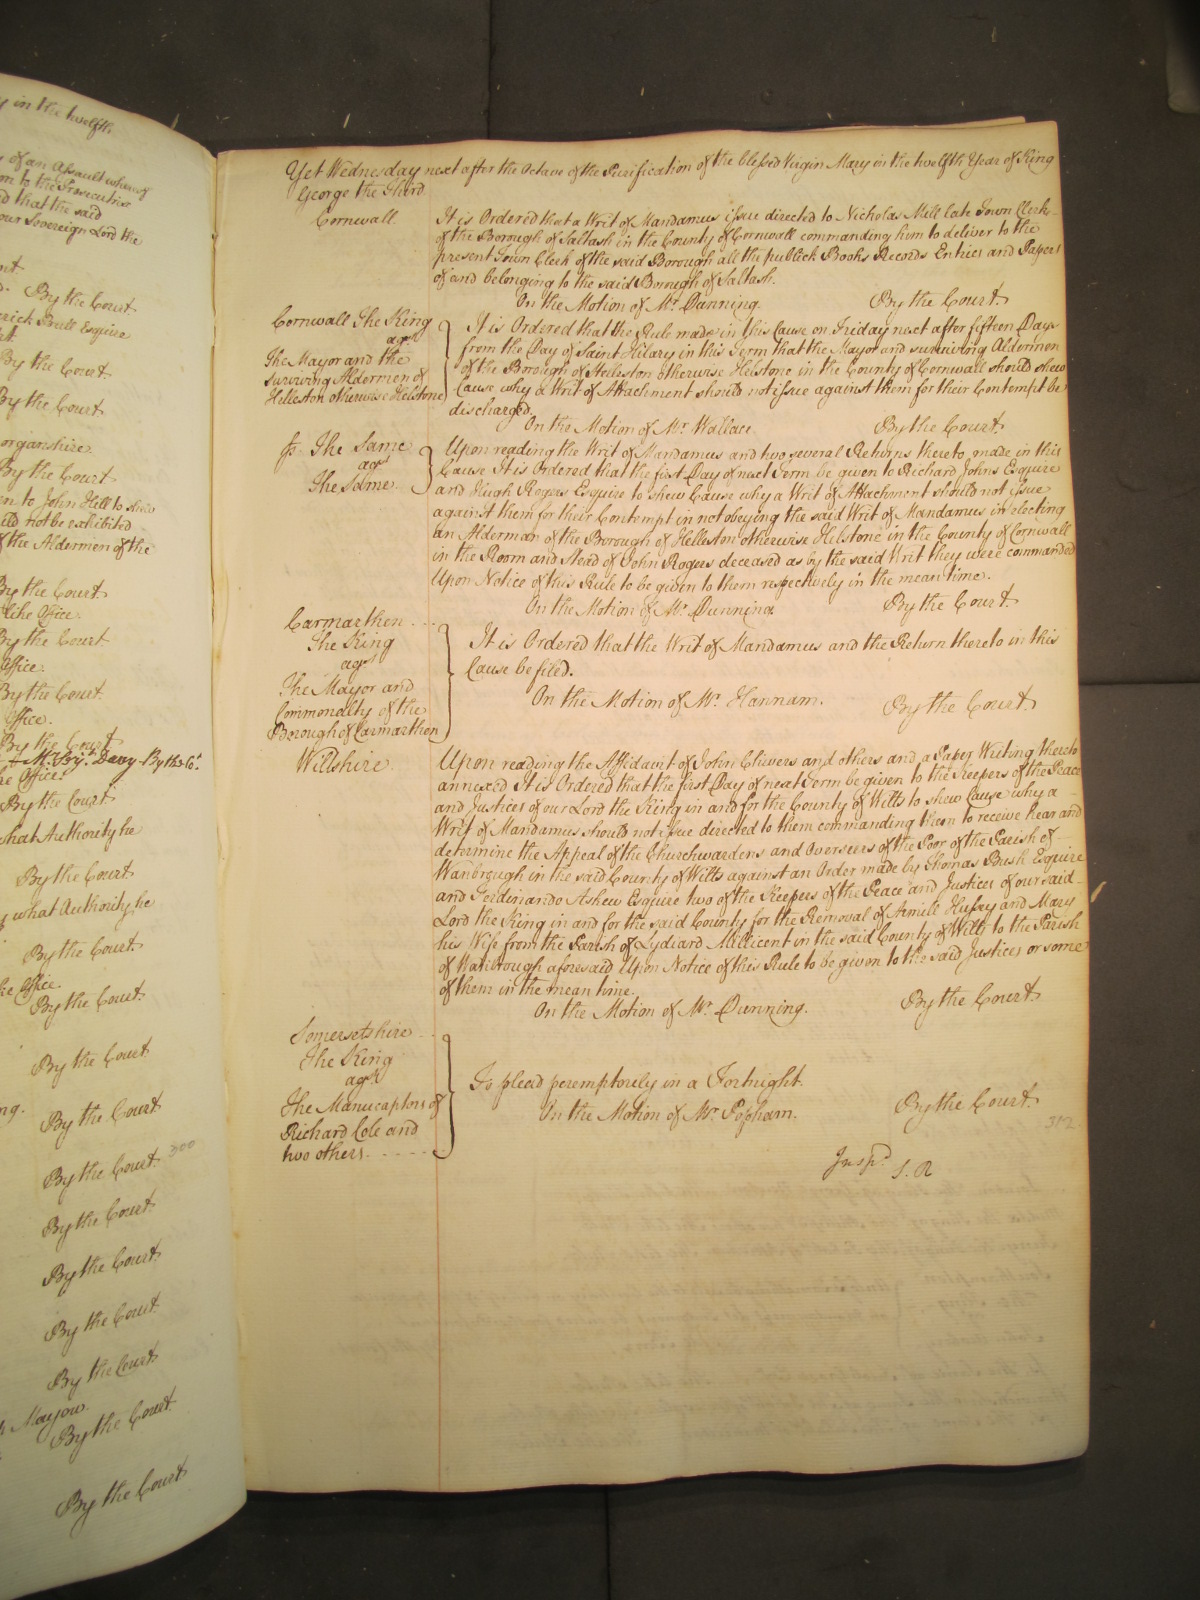 y in the twelfth
of an Assault whereof
to the Prosecutrix
d that the said
our Sovereign Lord the
By the Court
Butt Esquire
By the Court
By the Court
organshire
By the Court
to John Hill to shew
uld not be exhibited
of the Aldermen of the
By the Court
like Office
By the Court
Office
By the Court
Office
By the Court
Mr. Serjt. Davy By the Ct.
Office
By the Court
what Authority he
By the Court
y what Authority he
By the Court
he Office
By the Court
By the Court
By the Court
By the Court 300
By the Court
By the Court
By the Court
By the Court
Mayow
By the Court
By the Court
Yet Wednesday next after the Octave of the Purification of the blessed Virgin Mary in the twelfth Year of King
George the Third
Cornwall
It is Ordered that a Writ of Mandamus issue directed to Nicholas Mill late Town Clerk
of the Borough of Saltash in the County of Cornwall commanding him to deliver to the
present Town Clerk of the said Borough all the publick Books Records Entries and Papers
of and belonging to the said Borough of Saltash.
On the Motion of Mr. Dunning. By the Court
Cornwall The King
agt
The Mayor and the
surviving Aldermen of
Helleston otherwise Helstone
It is Ordered that the Rule made in this Cause on Friday next after fifteen Days
from the Day of Saint Hilary in this Term that the Mayor and surviving Aldermen
of the Borough of Helleston otherwise Helstone in the County of Cornwall should shew
Cause why a Writ of Attachment should not issue against them for their Contempt be
discharged.
On the Motion of Mr. Wallace. By the Court
fs. The Same
agt
The Same
Upon reading the Writ of Mandamus and two several Returns thereto made in this
Cause It is Ordered that the first Day of next Term be given to Richard Johns Esquire
and Hugh Rogers Esquire to shew Cause why a Writ of Attachment should not issue
against them for their Contempt in not obeying the said Writ of Mandamus in electing
an Alderman of the Borough of Helleston otherwise Helstone in the County of Cornwall
in the Room and Stead of John Rogers deceased as by the said Writ they were commanded
Upon Notice of this Rule to be given to them respectively in the mean time.
On the Motion of Mr. Dunning By the Court
Carmarthen
The King
agt
The Mayor and
Commonalty of the
Borough of Carmarthen
It is Ordered that the Writ of Mandamus and the Return thereto in this
Cause be filed.
On the Motion of Mr. Hannam. By the Court
Wiltshire
Upon reading the Affidavit of John Chivers and others and a Paper Writing thereto
annexed It is Ordered that the first Day of next Term be given to the Keepers of the Peace
and Justices of our Lord the King in and for the County of Wilts to shew Cause why a
Writ of Mandamus should not issue directed to them commanding them to receive hear and
determine the Appeal of the Churchwardens and Overseers of the Poor of the Parish of
Wanbrough in the said County of Wilts against an Order made by Thomas Bush Esquire
and Ferdinando Askew Esquire two of the Keepers of the Peace and Justices of our said
Lord the King in and for the said County for the Removal of Hussey and Mary
his Wife from the Parish of Lydiard Millicent in the said County of Wilts to the Parish
of Wanbrough aforesaid Upon Notice of this Rule to be given to the said Justices or some
of them in the mean time.
On the Motion of Mr. Dunning. By the Court
Somersetshire
The King
agt
The Manucaptors of
Richard Cole and
two others
To plead peremptorily in a Fortnight.
On the Motion of Mr. Popham. By the Court
312
Inspd. S. R